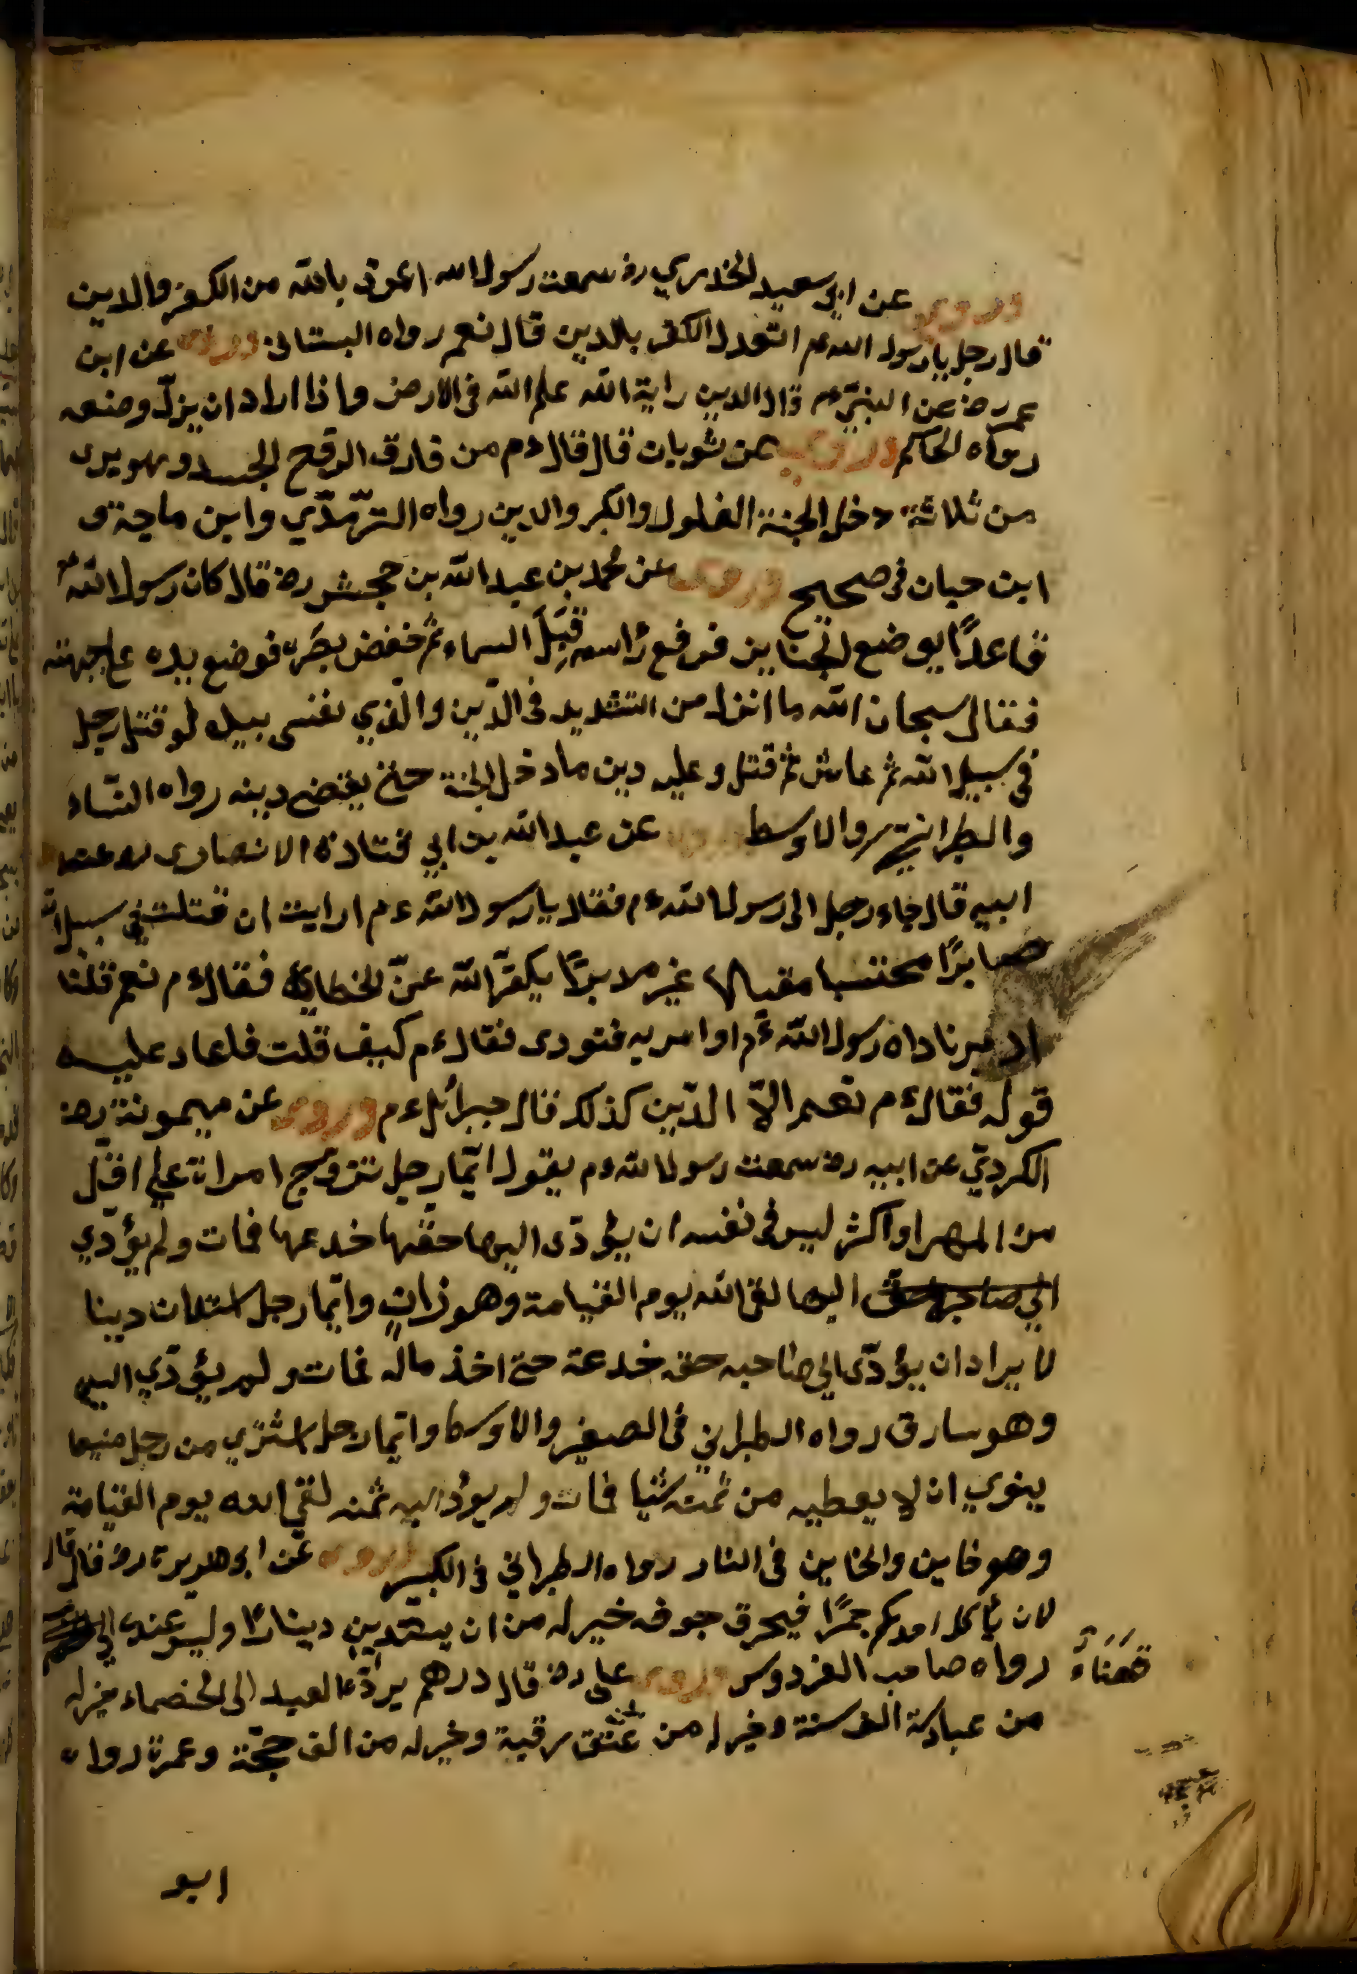 وروى عن ابى سعيد الخدري رض سمعت رسول الله اعوذ بالله من الكفر والدين
قال رجل يا رسول الله عم اتعدل الكفر بالدين قال نعم رواه النسائى وروى عن ابن
عمر رض عن النبي عم قال الدين راية الله على الله فى الارض واذا اراد ان يزل وضعه
رواه الحاكم وروى عن ثوبان قال قال عم من فارق الروح الجسد وهو برى
من ثلاثة دخل الجنة الغلول والكبر والدين رواه الترمذي وابن ماجة و
ابن حبان فى صحيح وروى عن محمد بن عبد الله بن جحش رض قال كان رسول الله عم
قاعدًا يوضع الجنايز فرفع رأسه قِبَلَ السماء ثم خفض بصره فوضع يده على جبهته
فقال سبحان الله ما انزل من التشديد فى الدّين والّذي نفسى بيده لو قتل رجل
فى سبيل الله ثم عاش ثم قتل وعليه دين ما دخل الجنة حتى يقضى دينه رواه النساء
والطبراني والاوسط وروى عن عبد الله بن ابي قتادة الانصارى عن
ابيه قال جاء رجل الى رسول الله عم فقال يا رسول الله عم ارايت ان قتلت فى سبيل الله
صابرًا محتسبا مقبلا غير مدبرًا يكفر الله عنّى الخطايا فقال عم نعم فلما
ادبر ناداه رسول الله عم او امر به فنودى فقال عم كيف قلت فاعاد عليه
قوله فقال عم نعم الاّ الدّين كذلك قال جبرائل عم وروى عن ميمونة رض
الكرديّ عن ابيه رض سمعت رسول الله عم يقول ايّما رجل تزوّج امراة على اقل
من المهر او اكثر ليس فى نفسه ان يؤدّى اليها حقّها خدعها فمات ولم يؤدّي
اليها لقى الله يوم القيامة وهو زانٍ وايّما رجل استدان دينا
لا يراد ان يؤدّى الى صاحبه حقه خدعة حتى اخذ ماله فمات ولم يؤدّي اليه
وهو سارق رواه الطبراني فى الصغير والاوسط وايّما رجل اشتري من رجل بيعا
ينوي ان لا يعطيه من ثمنه شيا فمات ولم يؤد اليه ثمنه لقي الله يوم القيامة
وهو خاين والخاين فى النار رواه الطبراني فى الكبير وروى عن ابو هريرة رض قال قال
لان يأكل احدكم جمرًا فيحرق جوفه خير له من ان يستدين دينارًا وليس عنده
قضاءً
رواه صاحب الفردوس وروى على رض قال درهم يردّها العبد الى الخصماء خير له
من عبادة الف سنة وخير له من عتق رقبة وخير له من الف حجّة وعمرة رواه
ابو